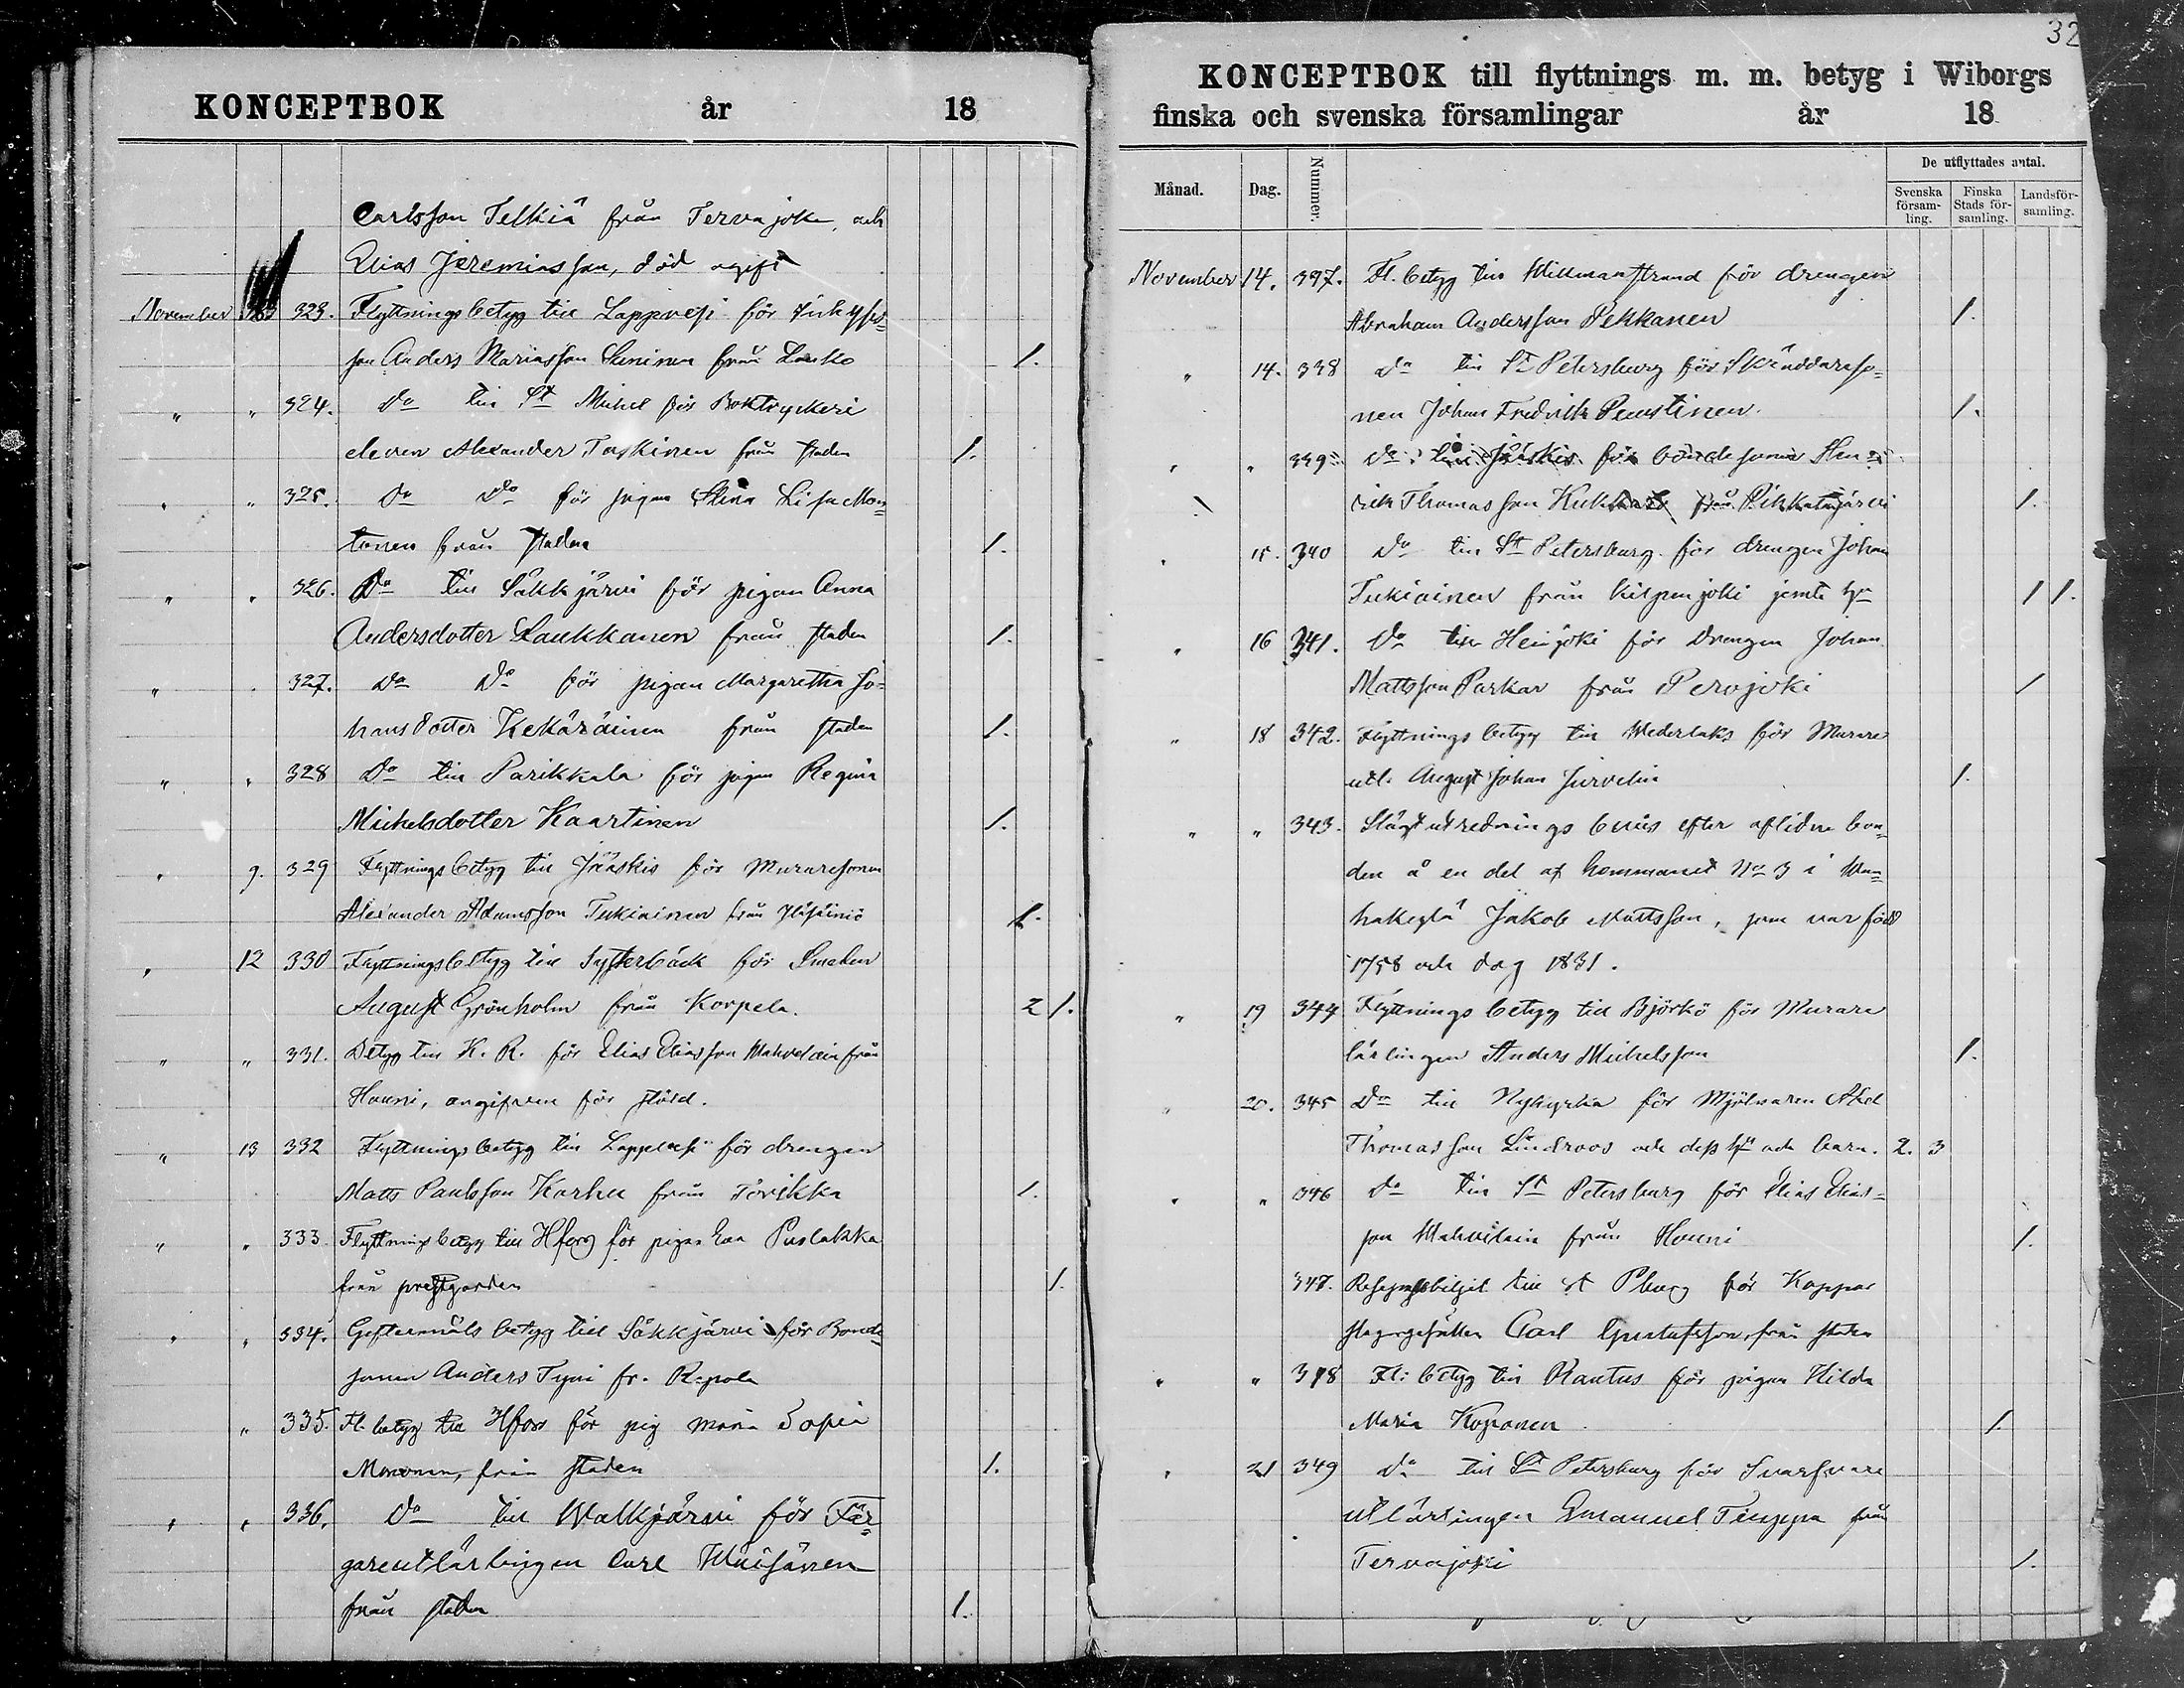 KONCEPTBOK år 18
Carlsson Telkiä från Tervajoki, och
Elias Jeremiasson, död ogift
November 323. Flyttningsbetyg till Lappvesi för
son Anders Mariasson från
" " 324. Do till St Michel för Boktryckeri
eleven Alexander Taskinen från staden 1.
" " 325. Do Do för pigan Lisa Mon=
tonen från staden 1.
" " 326. Do till Säkkjärvi för pigan Anna
Andersdotter Laukkanen från staden 1.
" " 327. Do Do för pigan Margaretha Jo=
hansdotter Kekäräinen från staden 1.
" " 328 Do till Parikkala för pigan Regina
Michelsdotter Kaartinen 1.
" 9. 329 Flyttningsbetyg till Jääskis för Muraresonen
Alexander Adamsson Tukiainen från 1.
" 12 330 Flyttningsbetyg till Systerbäck för Smeden
August Grönholm från Korpela. 2 1.
" " 331. Betyg till K. R. för Elias Eliasson från
Houni, angifven för stöld.
" 13 332 Flyttningsbetyg till Lappvesi för drengen
Matts Paulsson Karhu från 1.
" " 333. Flyttningsbetyg till Hfors för pigan Eva Puslakka
från prestgården 1.
" " 334. Giftermåls betyg till Säkkjärvi för Bonde
sonen Anders Tyni fr. Repola
" 335. Fl. betyg till Hfors för pig Maria Sofia
från staden 1.
" " 336. Do till Walkjärvi för Fär=
gareutlärlingen Carl
från staden 1.
32
KONCEPTBOK till flyttnings m. m. betyg i Wiborgs
finska och svenska församlingar år 18
Månad. Dag. Nummer. De utflyttades antal.
Svenska församling. Finska Stads församling. Landsförsamling.
November 14. 337. Fl. betyg till Willmanstrand för drengen
Abraham Andersson Pekkanen 1.
" 14. 338 do till St Petersburg för Skräddareso=
nen Johan Fredrik 1.
" " 339 Do till Jääskis för bondesonen Hen=
rik Thomasson från 1.
" 15. 340 Do till St Petersburg för drengen Johan
Tukiainen från Kilpenjoki jemte hu 1 1.
" 16 341. Do till Heinjoki för Drengen Johan
Mattsson Parkar från Perojoki 1
" 18 342. Flyttnings betyg till Wederlaks för Murare
utl. August Johan 1.
" " 343. Slägtutrednings bevis efter aflidne bon=
den å en del af hemmanet No 3 i Wan=
hakylä Jakob Mattsson, som var född
1758 och dog 1831.
" 19 344 Flyttnings betyg till Björkö för Murare
lärlingen Anders Michelsson 1.
" 20. 345 Do till Nykyrka för Mjölnaren Abel
Thomasson Lindroos och dess hu och barn. 2. 3
" " 346 do till St Petersburg för Elias Elias=
son från Houni 1.
347. till St Pburg för Koppar
slagaregesällen Carl Gustafsson, från staden
" " 348 Fl: betyg till Rautus för pigan Hilda
Maria Koponen 1.
" 21 349 do till St Petersburg för Svarfvare
utlärlingen Emanuel från
Tervajoki 1.